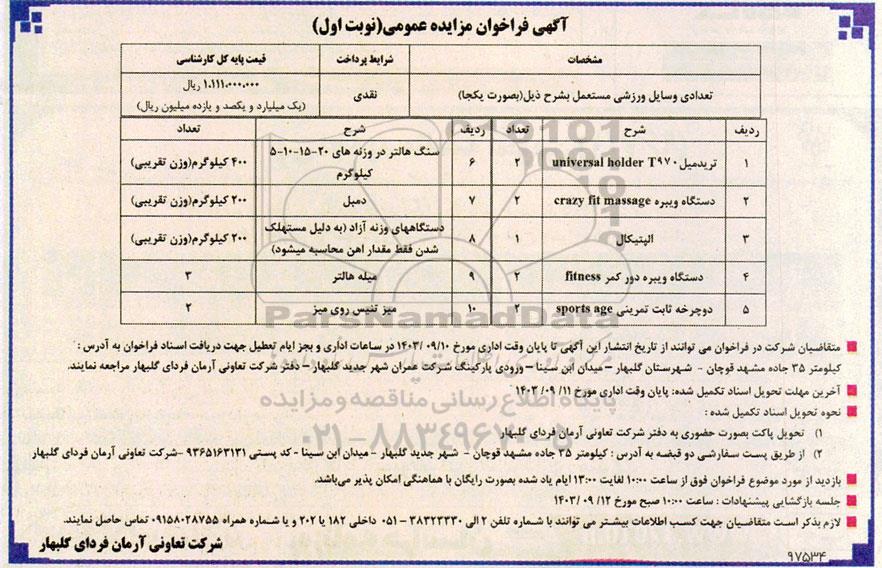 آگهی فراخوان مزایده عمومی(نوبت اول)
مشخصات شرایط پرداخت قیمت پایه کل کارشناسی
تعدادی وسایل ورزشی مستعمل بشرح ذیل(بصورت یکجا) نقدی ۱.۱۱۱.۰۰۰.۰۰۰ ریال
(یک میلیارد و یکصد و یازده میلیون ریال)
ردیف شرح تعداد ردیف شرح تعداد
۱ تریدمیل universal holder T۹۷۰ ۲ ۶ سنگ هالتر در وزنه های ۲۰-۱۵-۱۰-۵ کیلوگرم ۴۰۰ کیلوگرم(وزن تقریبی)
۲ دستگاه ویبره crazy fit massage ۲ ۷ دمبل ۲۰۰ کیلوگرم(وزن تقریبی)
۳ الپتیکال ۱ ۸ دستگاههای وزنه آزاد (به دلیل مستهلک شدن فقط مقدار اهن محاسبه میشود) ۲۰۰ کیلوگرم(وزن تقریبی)
۴ دستگاه ویبره دور کمر fitness ۲ ۹ میله هالتر ۳
۵ دوچرخه ثابت تمرینی sports age ۲ ۱۰ میز تنیس روی میز ۲
متقاضیان شرکت در فراخوان می توانند از تاریخ انتشار این آگهی تا پایان وقت اداری مورخ ۱۴۰۳/۰۹/۱۰ در ساعات اداری و بجز ایام تعطیل جهت دریافت اسناد فراخوان به آدرس :
کیلومتر ۳۵ جاده مشهد قوچان - شهرستان گلبهار – میدان ابن سینا – ورودی پارکینگ شرکت عمران شهر جدید گلبهار – دفتر شرکت تعاونی آرمان فردای گلبهار مراجعه نمایند.
آخرین مهلت تحویل اسناد تکمیل شده: پایان وقت اداری مورخ ۱۴۰۳/۰۹/۱۱
نحوه تحویل اسناد تکمیل شده :
۱) تحویل پاکت بصورت حضوری به دفتر شرکت تعاونی آرمان فردای گلبهار
۲) از طریق پست سفارشی دو قبضه به آدرس : کیلومتر ۳۵ جاده مشهد قوچان - شهر جدید گلبهار - میدان ابن سینا - کد پستی ۹۳۶۵۱۶۳۱۳۱ –شرکت تعاونی آرمان فردای گلبهار
بازدید از مورد موضوع فراخوان فوق از ساعت ۱۰:۰۰ لغایت ۱۳:۰۰ ایام یاد شده بصورت رایگان با هماهنگی امکان پذیر می‌باشد.
جلسه بازگشایی پیشنهادات : ساعت ۱۰:۰۰ صبح مورخ ۱۴۰۳/۰۹/۱۲
لازم بذکر است متقاضیان جهت کسب اطلاعات بیشتر می توانند با شماره تلفن ۲ الی ۳۸۳۲۳۳۳۰ – ۰۵۱ داخلی ۱۸۲ یا ۲۰۲ و یا شماره همراه ۰۹۱۵۸۰۲۸۷۵۵ تماس حاصل نمایند.
شرکت تعاونی آرمان فردای گلبهار
۹۷۵۳۴
ParsNamadData
پایگاه اطلاع رسانی مناقصه و مزایده
۰۲۱-۸۸۳۴۹۶۷۰-۵